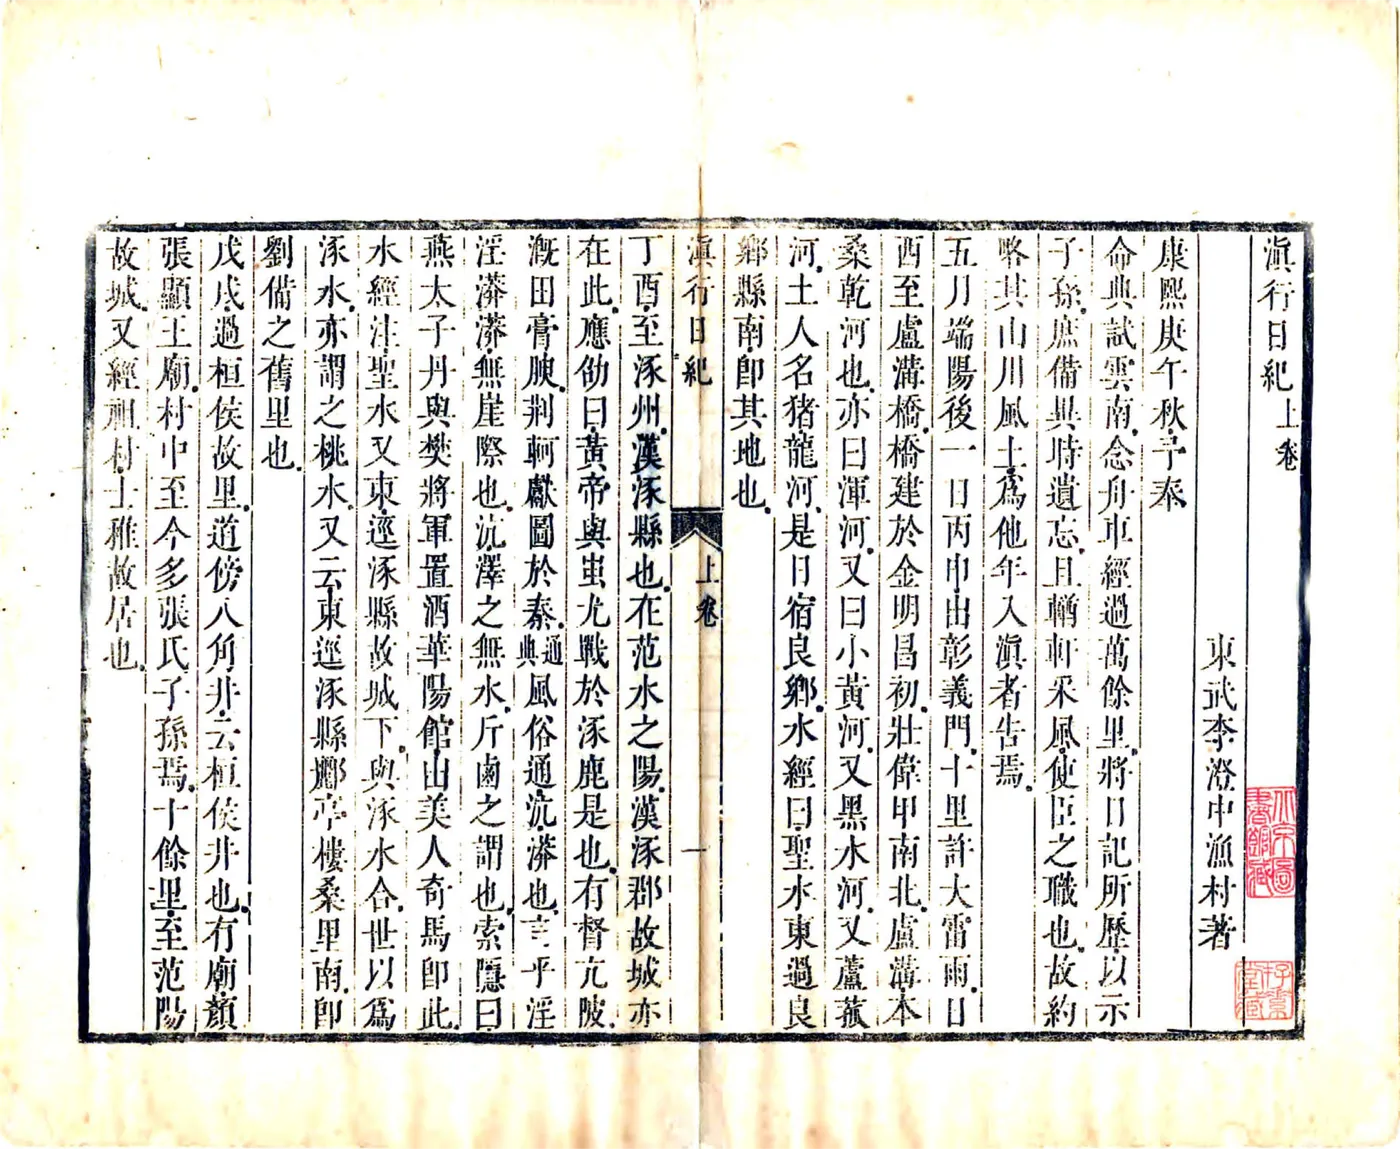 滇行日紀上卷
東武李澄中漁村著
康熙庚午秋予奉
命典試雲南念舟車經過萬餘里將日記所歷以示
子孫庶備異時遺忘且輶軒采風使臣之職也故約
略其山川風土爲他年入滇者告焉
五月端陽後一日丙申出彰義門十里許大雷雨日
酉至盧溝橋橋建於金明昌初壯偉甲南北盧溝本
桑乾河也亦曰渾河又曰小黃河又黑水河又蘆菰
河土人名猪龍河是日宿良鄉水經曰聖水東過良
鄉縣南卽其地也
滇行日紀
上卷
一
丁酉至涿州漢涿縣也在范水之陽漢涿郡故城亦
在此應劭曰黃帝與蚩尤戰於涿鹿是也有督亢陂
漑田膏腴荆軻獻圖於秦通典風俗通沆漭也言乎淫
淫漭漭無崖際也沆澤之無水斥鹵之謂也索隱曰
燕太子丹與樊將軍置酒華陽館出美人奇馬卽此
水經注聖水又東逕涿縣故城下與涿水合世以爲
涿水亦謂之桃水又云東逕涿縣酈亭樓桑里南卽
劉備之舊里也
戊戌過桓侯故里道傍八角井云桓侯井也有廟顏
張顯王廟村中至今多張氏子孫焉十餘里至范陽
故城又經祖村士稚故居也